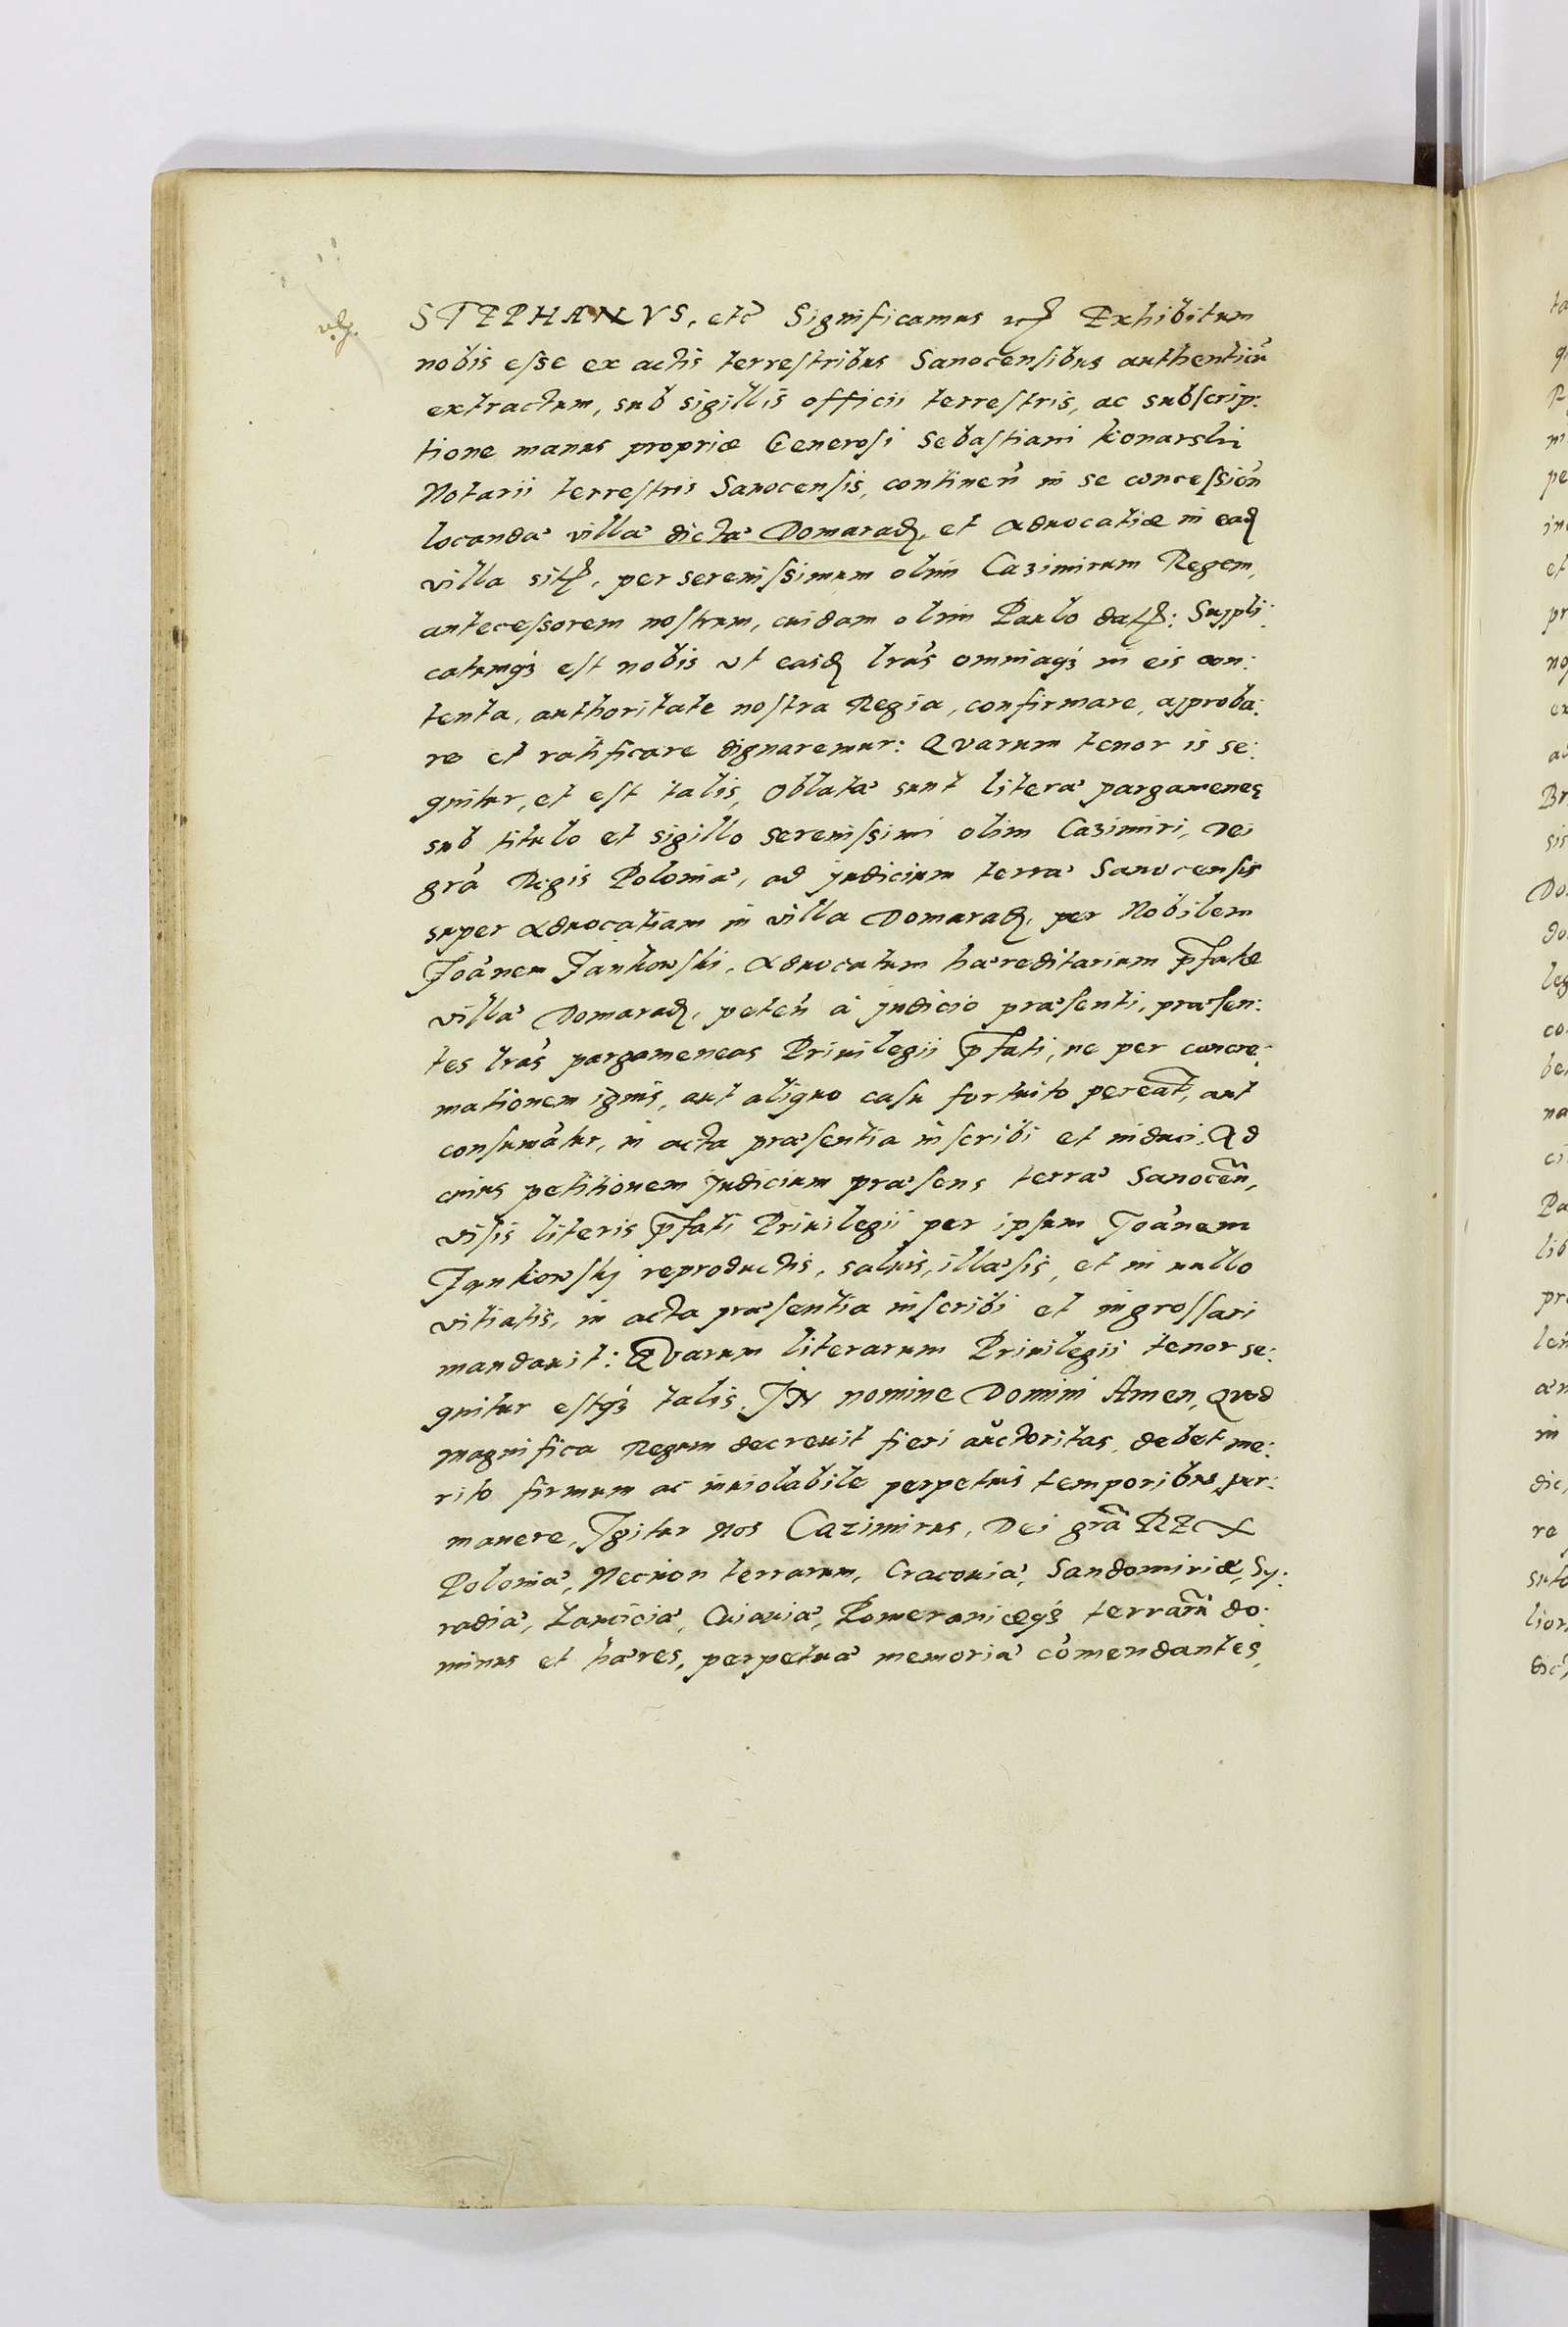 STEPHANVS, etc̃ Significamus etc Exhibitum
nobis esse ex actis terrestribus Sanocensibus authenticũ
extractum, sub sigillis officii terrestris, ac subscrip:
tione manus propriæ Generosi Sebastiani Konarski
Notarii terrestris Sanocensis, continen̄ in se concession̄
locandæ villæ dictæ Domaradz, et Advocatiæ in ead
villa sit, per serenissimum olim Cazimirum Regem,
antecessorem nostrum, cuidam olim Paulo dat: Suppli:
catumq́ꝫ est nobis vt easd lr̃as omniaq́ꝫ in eis con:
tenta, authoritate nostra Regia, confirmare, approba:
re et ratificare dignaremur: Qvarum tenor is se:
quitur, et est talis, Oblatæ sunt literæ pargameneę
sub titulo et sigillo serenissimi olim Cazimiri, Dei
gr̃a Regis Poloniæ, ad judicium terræ Sanocensis
super Aduocatiam in villa Domaradz, per Nobilem
Joãnem Jankowski, Aduocatum hæreditarium p̃fatæ
villæ Domaradz, peteñ à judicio præsenti, præsen:
tes lr̃as pargameneas Priuilegii p̃fati, ne per concre:
mationem ignis, aut aliquo casu fortuito pereãt, aut
consumãtur, in acta præsentia inscribi et induci. Ad
cuius petitionem judicium præsens terræ Sanoceñ,
visis literis p̃fati Priuilegii per ipsum Joãnem
Jankowskj reproductis, saluis, illæsis, et in nullo
vitiatis, in acta præsentia inscribi et ingrossari
mandauit: Qvarum literarum Priuilegii tenor se:
quitur estq́ꝫ talis. JN nomine Domini Amen, Qvod
magnifica Regum decreuit fieri auctoritas, debet me:
rito firmum ac inuiolabile perpetuis temporibus per:
manere, Jgitur Nos Cazimirus, Dei gr̃a REX
Poloniæ, Necnon terrarum, Cracouiæ, Sandomiriæ, Sy:
radiæ, Lanciciæ, Cuiauiæ, Pomeraniæq́ꝫ terrarũ do:
minus et hæres, perpetuæ memoriæ cõmendantes,